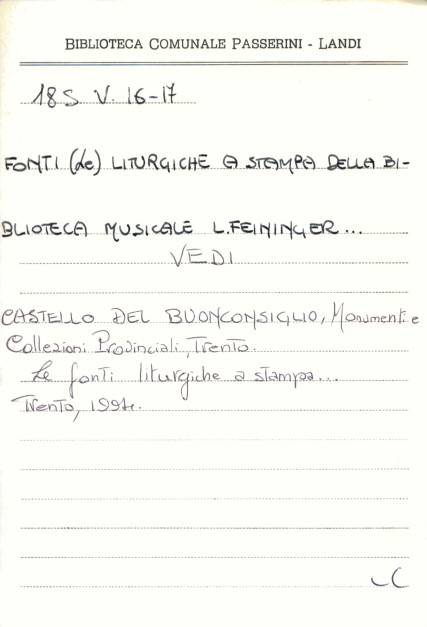 BIBLIOTECA COMUNALE PASSERINI - LANDI
18S V. 16-17
FONTI (Le) LITURGICHE A STAMPA DELLA BI-
BLIOTECA MUSICALE L.FEININGER...
VEDI
CASTELLO DEL BUONCONSIGLIO, Monumenti e
Collezioni Provinciali, Trento.
Le fonti liturgiche a stampa...
Trento, 1994.